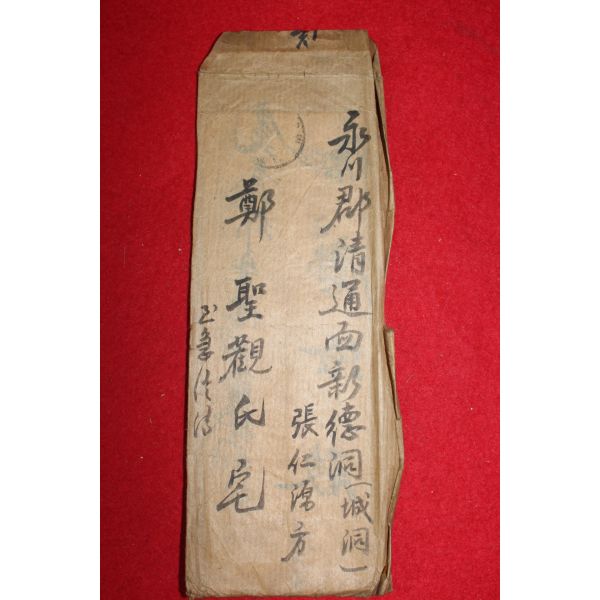 永川郡清通面新德洞(城洞)
張仁源方
鄭聖觀氏宅